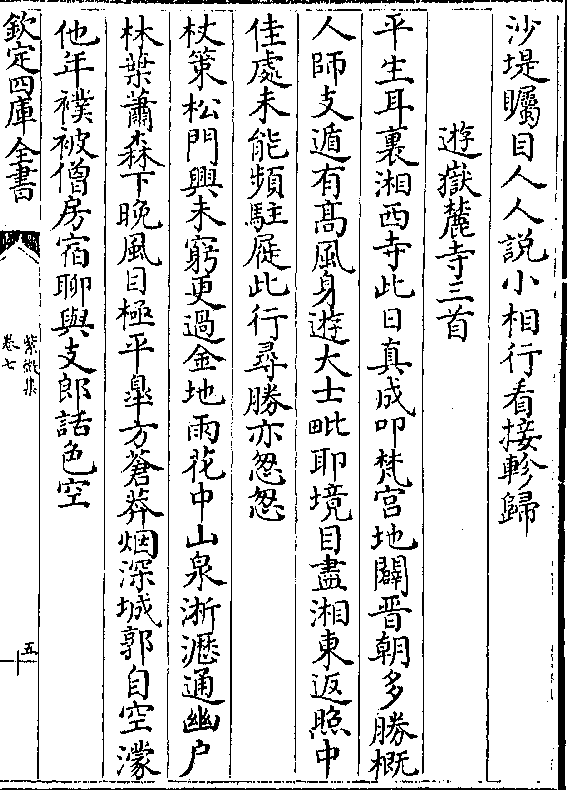 沙堤矚目人人說小相行看接軫歸
遊嶽麓寺三首
平生耳裏湘西寺此日真成叩梵宫地闢晋朝多勝概
人師支遁有髙風身遊大士毗耶境目盡湘東返照中
佳處未能頻駐屐此行尋勝亦怱怱
杖策松門興未窮更過金地雨花中山泉淅瀝通幽户
林葉蕭森下晚風目極平臯方蒼莽烟深城郭自空濛
他年襆被僧房宿聊與支郎話色空
欽定四庫全書
紫微集
卷七
五